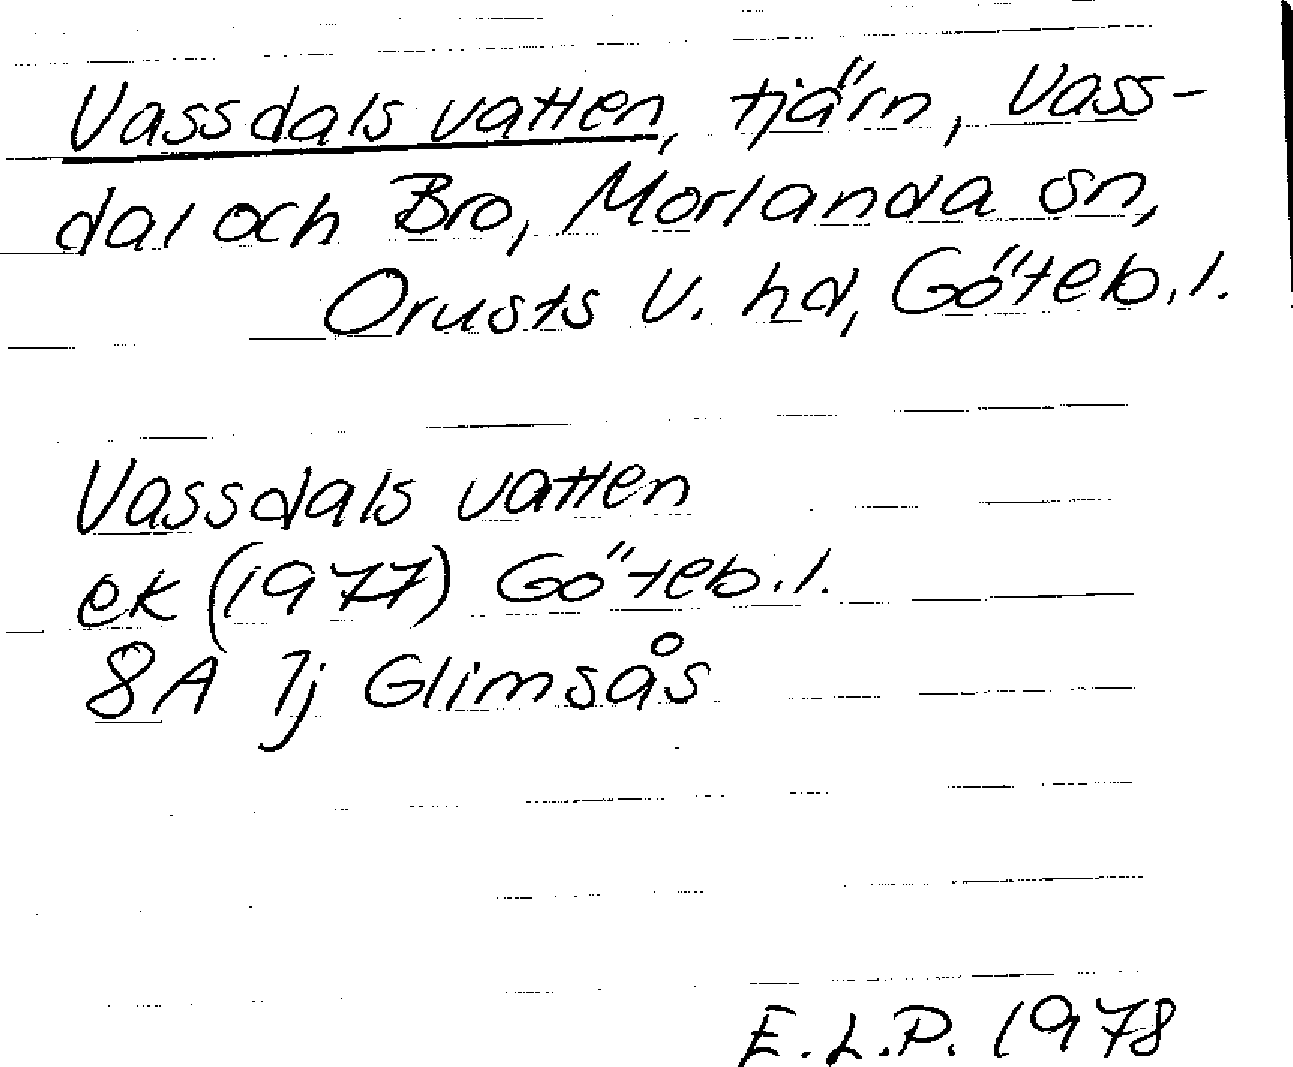 Vassdals vatten, tjärn, Vass-
dal och Bro, Morlanda sn,
Orusts V. hd, Göteb. l.
Vassdals vatten
ek (1977) Göteb. l.
8A 7j Glimsås
E.L.P. 1978